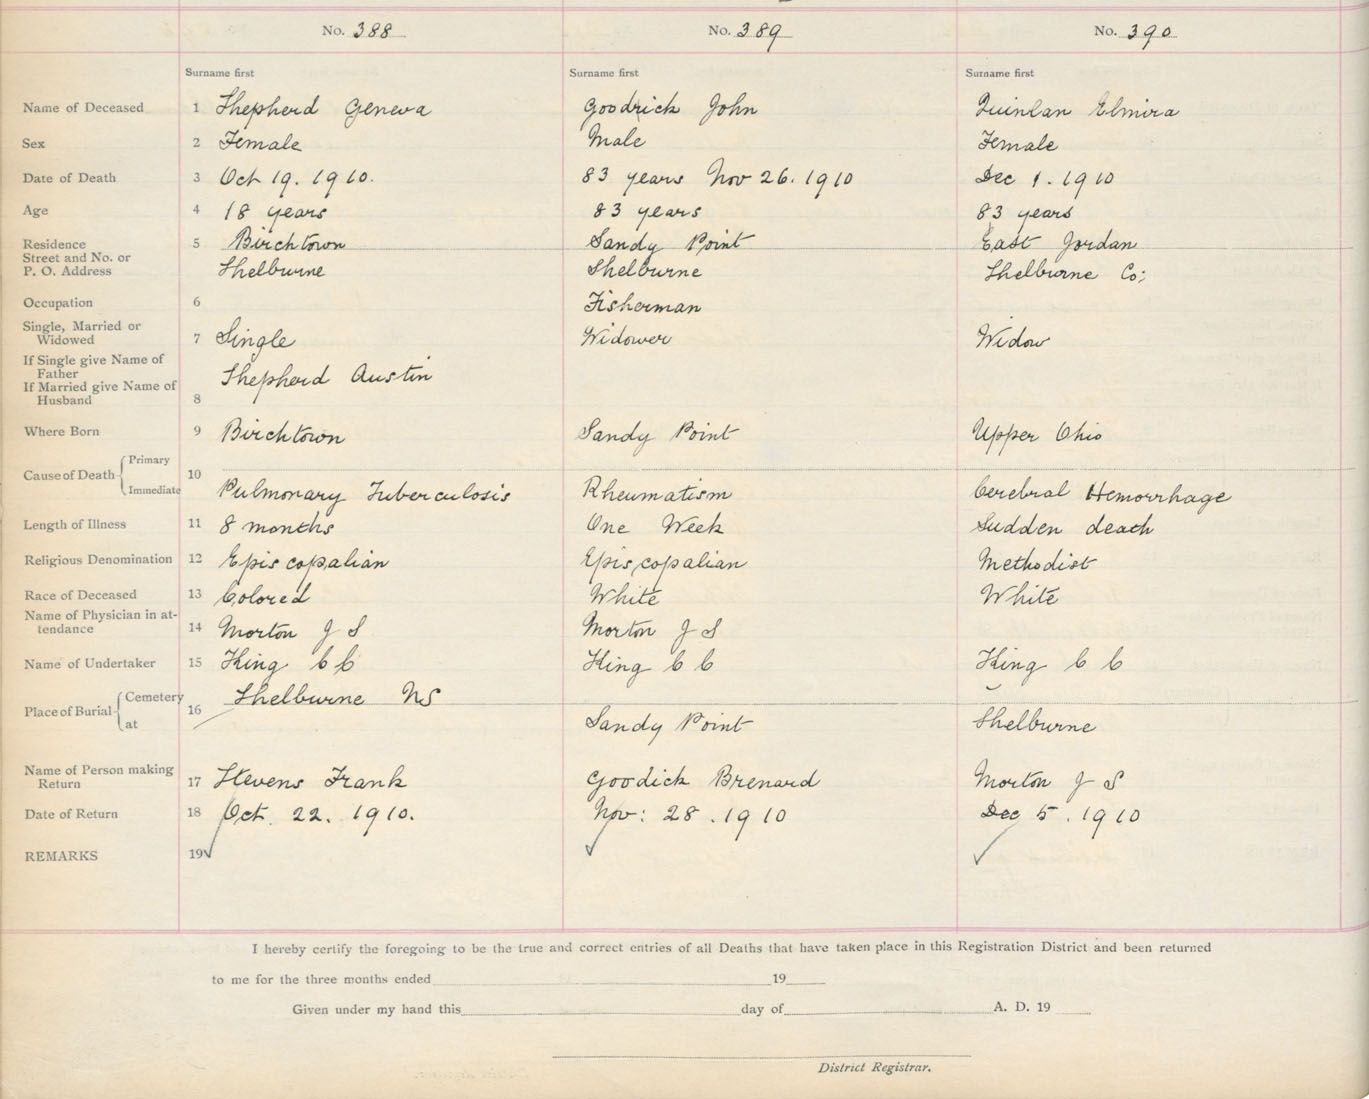 No. 388 No. 389 No. 390
Surname first Surname first Surname first
Name of Deceased 1 Shepherd Geneva Goodrick John Quinlan Elmira
Sex 2 Female Male Female
Date of Death 3 Oct 19. 1910. 83 years Nov 26. 1910 Dec 1. 1910
Age 4 18 years 83 years 83 years
Residence 5 Birchtown Sandy Point East Jordan
Street and No. or
P. O. Address Shelburne Shelburne Shelburne Co:
Occupation 6 Fisherman
Single, Married or
Widowed 7 Single Widower Widow
If Single give Name of
Father Shepherd Austin
If Married give Name of
Husband 8
Where Born 9 Birchtown Sandy Point Upper Ohio
Cause of Death Primary 10
Immediate Pulmonary Tuberculosis Rheumatism Cerebral Hemorrhage
Length of Illness 11 8 months One Week Sudden death
Religious Denomination 12 Episcopalian Episcopalian Methodist
Race of Deceased 13 Colored White White
Name of Physician in at-
tendance 14 Morton J S Morton J S
Name of Undertaker 15 King C C King C C King C C
Place of Burial Cemetery 16 Shelburne NS
at Sandy Point Shelburne
Name of Person making
Return 17 Stevens Frank Goodick Brenard Morton J S
Date of Return 18 Oct 22. 1910. Nov: 28 . 1910 Dec 5 . 1910
REMARKS 19
I hereby certify the foregoing to be the true and correct entries of all Deaths that have taken place in this Registration District and been returned
to me for the three months ended 19
Given under my hand this day of A. D. 19
District Registrar.